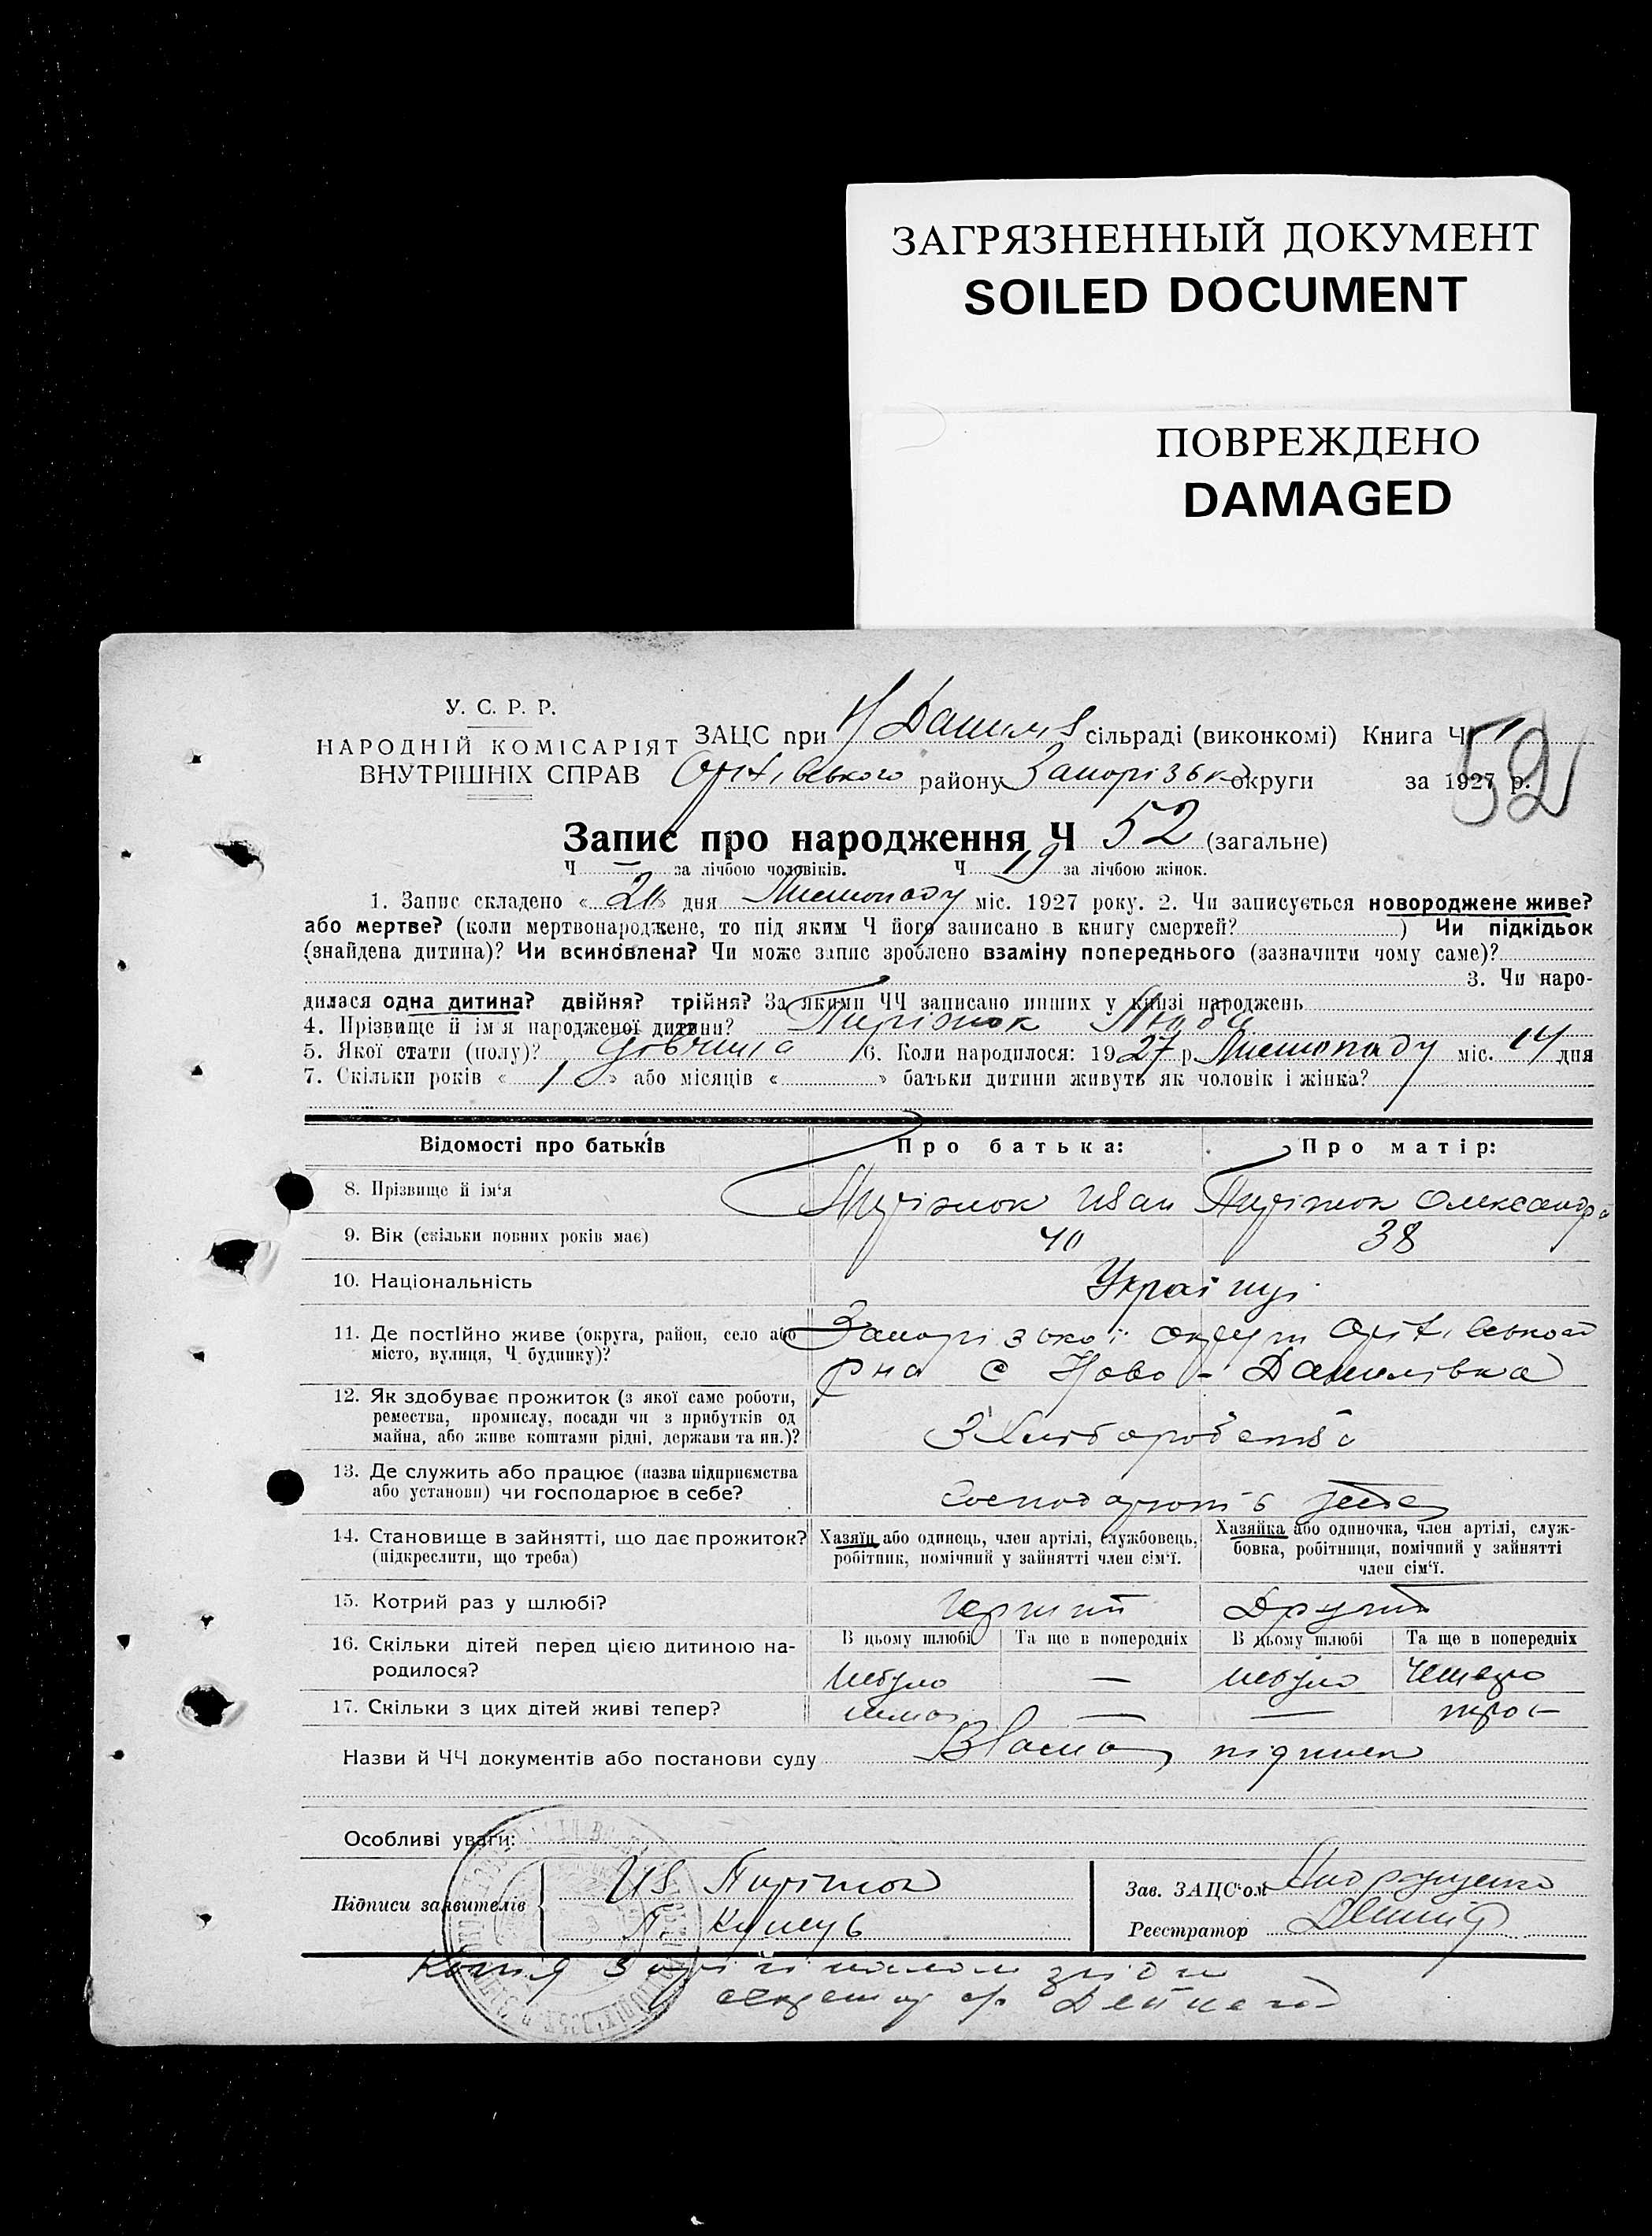 ЗАГРЯЗНЕННЫЙ ДОКУМЕНТ
SOILED DOCUMENT
ПОВРЕЖДЕНО
DAMAGED
У. С. Р. Р.
НАРОДНІЙ КОМІСАРІЯТ
ВНУТРІШНІХ СПРАВ
ЗАЦС при Н Данилів сільраді (виконкомі) Книга Ч 1
52
Оріхівського району Запорізько округи за 1927 р.
Запис про народження Ч 52 (загальне)
Ч — за лічбою чоловіків. Ч 19 за лічбою жінок.
1. Запис складено « 20 » дня Листопаду міс. 1927 року. 2. Чи записується новороджене живе?
або мертве? (коли мертвонароджене, то під яким Ч його записано в книгу смертей? ) Чи підкідьок
(знайдена дитина)? Чи всиновлена? Чи може запис зроблено взаміну попереднього (зазначити чому саме)?
3. Чи наро-
дилася одна дитина? двійня? трійня? За якими ЧЧ записано инших у книзі народжень
4. Прізвище й ім'я народженої дитини? Люба
5. Якої стати (полу)? Дівчина 6. Коли народилося: 1927 р. Листопаду міс. 14 дня
7. Скільки років « 1 » або місяців « » батьки дитини живуть як чоловік і жінка?
Відомості про батьків
Про батька:
Про матір:
8. Прізвище й ім'я Іван Олександра
9. Вік (скільки повних років має) 40 38
10. Національність Українці
11. Де постійно живе (округа, район, село або
місто, вулиця, Ч будинку)?
Запорізької округи Оріхівського
рна с Ново-Данилівка
12. Як здобуває прожиток (з якої саме роботи,
ремества, промислу, посади чи з прибутків од
майна, або живе коштами рідні, держави та ин.)?
З хліборобства
13. Де служить або працює (назва підприємства
або установи) чи господарює в себе?
14. Становище в зайнятті, що дає прожиток?
(підкреслити, що треба)
Хазяїн або одинець, член артілі, службовець,
робітник, помічний у зайнятті член сім'ї.
Хазяйка або одиночка, член артілі, служ-
бовка, робітниця, помічний у зайнятті
член сім'ї.
15. Котрий раз у шлюбі? Перший Другий
16. Скільки дітей перед цією дитиною на-
родилося?
В цьому шлюбі Та ще в попередніх В цьому шлюбі Та ще в попередніх
небуло — небуло Четверо
17. Скільки з цих дітей живі тепер? нема — — троє
Назви й ЧЧ документів або постанови суду Власна підписка
Особливі уваги:
Підписи заявителів
Ів
Зав. ЗАЦС'ом
Реєстратор
Копія з оригіналом згідна